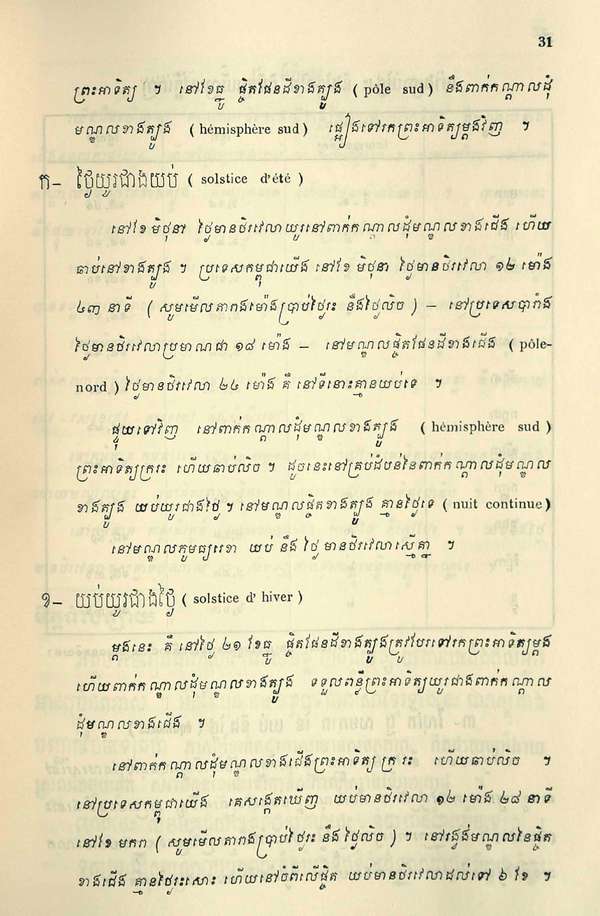 31
ព្រះអាទិត្យ ។ នៅខែធ្នូ ផ្ចិតផែនដីខាងត្បូង ( pôle sud ) នឹងពាក់កណ្ដាលដុំ
មណ្ឌលខាងត្បូង ( hémisphère sud ) ផ្អៀងទៅរកព្រះអាទិត្យម្ដងវិញ ។
ក– ថ្ងៃយូរជាងយប់ ( solstice d'été )
នៅខែ មិថុនា ថ្ងៃមានថិរវេលាយូរនៅពាក់កណ្ដាលដុំមណ្ឌលខាងជើង ហើយ
ឆាប់នៅខាងត្បូង ។ ប្រទេសកម្ពុជាយើង នៅខែ មិថុនា ថ្ងៃមានថិរវេលា ១២ ម៉ោង
៤៣ នាទី ( សូមមើលតារាងម៉ោងប្រាប់ថ្ងៃរះ នឹងថ្ងៃលិច ) – នៅប្រទេសបារាំង
ថ្ងៃមានថិរវេលាប្រមាណជា ១៨ ម៉ោង – នៅមណ្ឌលផ្ចិតផែនដីខាងជើង ( pôle-
nord ) ថ្ងៃមានថិរវេលា ២៤ ម៉ោង គឺ នៅទីនោះគ្មានយប់ទេ ។
ផ្ទុយទៅវិញ នៅពាក់កណ្ដាលដុំមណ្ឌលខាងត្បូង ( hémisphère sud )
ព្រះអាទិត្យក្ររះ ហើយឆាប់លិច ។ ដូចនេះនៅគ្រប់ដំបន់នៃពាក់កណ្ដាលដុំមណ្ឌល
ខាងត្បូង យប់យូរជាងថ្ងៃ ។ នៅមណ្ឌលផ្ចិតខាងត្បូង គ្មានថ្ងៃទេ ( nuit continue )
នៅមណ្ឌលភូមធ្យរេខា យប់ នឹង ថ្ងៃ មានថិរវេលាស្មើគ្នា ។
ខ– យប់យូរជាងថ្ងៃ ( solstice d' hiver )
ម្ដងនេះ គឺ នៅថ្ងៃ ២១ ខែធ្នូ ផ្ចិតផែនដីខាងត្បូងត្រូវបែរទៅរកព្រះអាទិត្យម្ដង
ហើយពាក់កណ្ដាលដុំមណ្ឌលខាងត្បូង ទទួលពន្លឺព្រះអាទិត្យយូរជាងពាក់កណ្ដាល
ដុំមណ្ឌលខាងជើង ។
នៅពាក់កណ្ដាលដុំមណ្ឌលខាងជើងព្រះអាទិត្យ ក្រ រះ ហើយឆាប់លិច ។
នៅប្រទេសកម្ពុជាយើង គេសង្កេតឃើញ យប់មានថិរវេលា ១២ ម៉ោង ២៨ នាទី
នៅខែ មករា ( សូមមើលតារាងប្រាប់ថ្ងៃរះ នឹង ថ្ងៃលិច ) ។ នៅរង្វង់មណ្ឌលនៃផ្ចិត
ខាងជើង គ្មានថ្ងៃរះសោះ ហើយនៅចំពីលើផ្ចិត យប់មានថិរវេលាដល់ទៅ ៦ ខែ ។